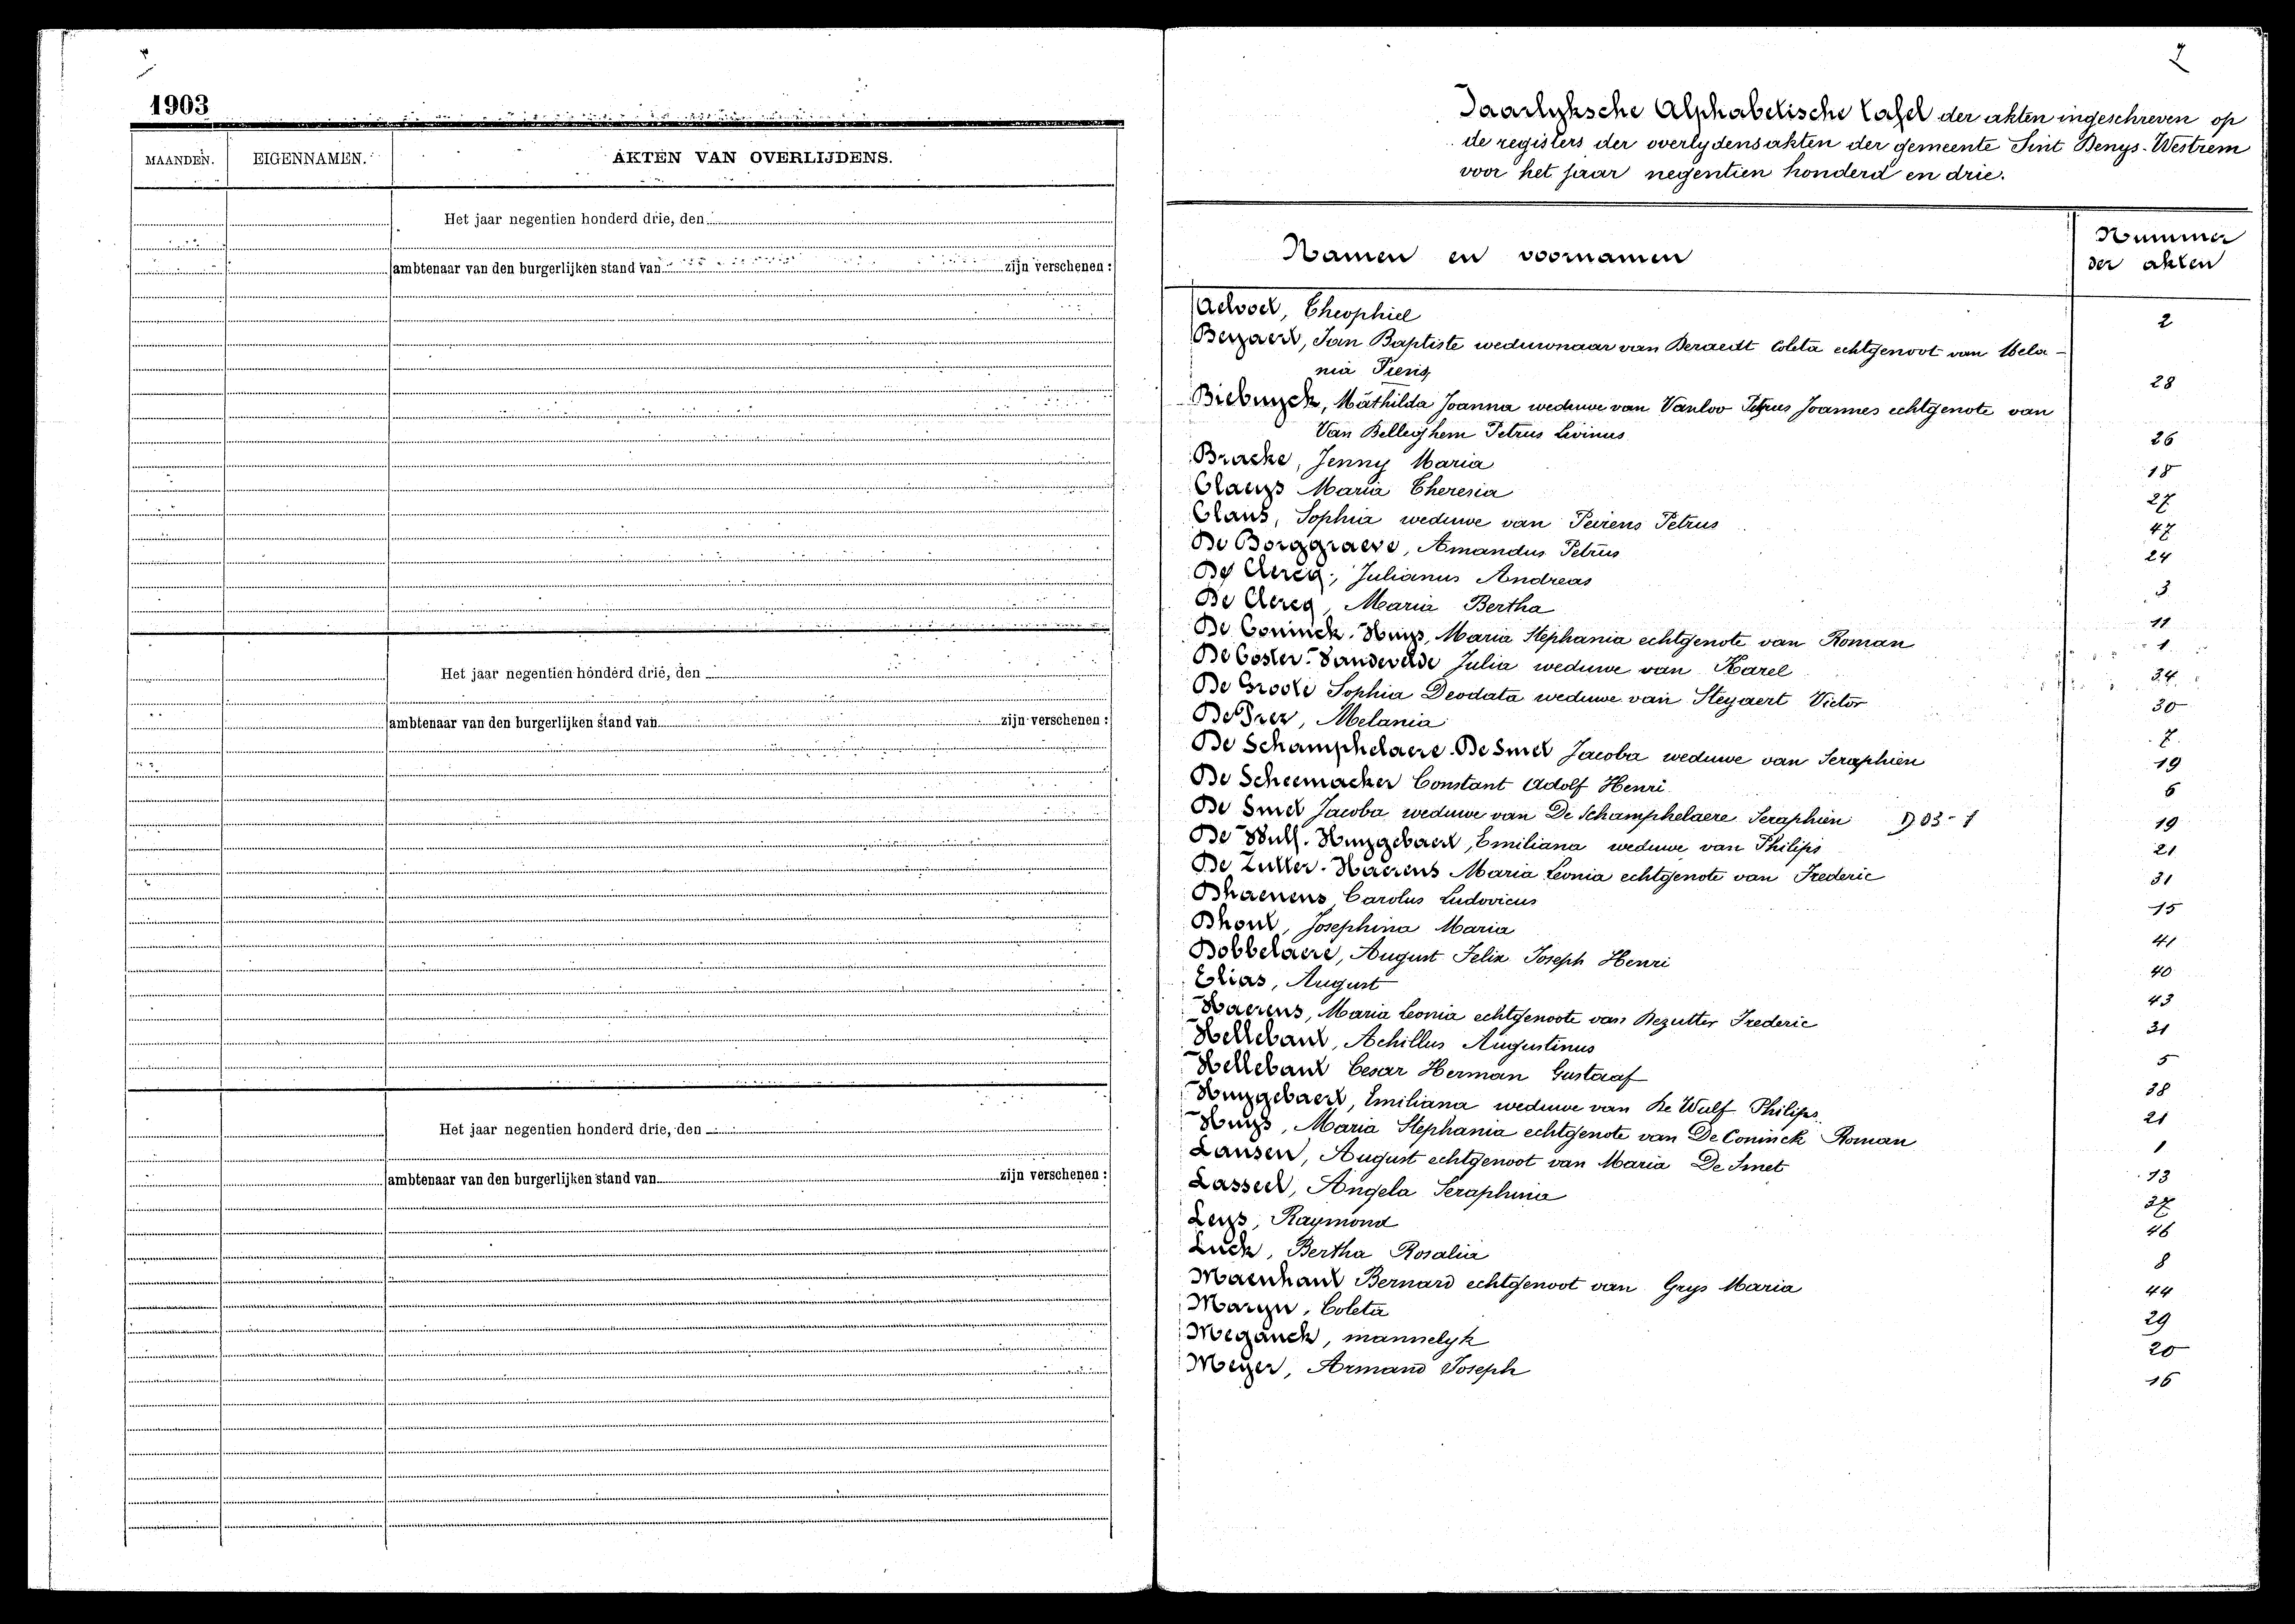 1903
MAANDEN. EIGENNAMEN. AKTEN VAN OVERLIJDENS.
Het jaar negentien honderd drie, den
ambtenaar van den burgerlijken stand van zijn verschenen :
Het jaar negentien honderd drie, den
ambtenaar van den burgerlijken stand van zijn verschenen :
Het jaar negentien honderd drie, den
ambtenaar van den burgerlijken stand van zijn verschenen :
Jaarlyksche Alphabetische tafel der akten ingeschreven op
de registers der overlydensakten der gemeente Sint Denys-Westrem
voor het jaar negentien honderd en drie.
Namen en voornamen Nummer
der akten
Advoet, Theophiel 2
Beyaert, Jan Baptiste weduwnaar van Coleta echtgenoot van Mela-
nia Piens 28
Biebuyck, Mathilda Joanna weduwe van Vanloo Petrus Joannes echtgenote van
Van Belleghem Petrus Livinus 26
Bracke, Jenny Maria 18
Claeys Maria Theresia 27
Claus, Sophia weduwe van Peirens Petrus 47
De Borggraeve, Amandus Petrus 24
De Clercq, Julianus Andreas 3
De Clercq, Maria Bertha 11
De Coninck-Huys, Maria Stephania echtgenote van Roman 1
De Coster-Vandevelde Julia weduwe van Karel 34
De Groote Sophia Deodata weduwe van Steyaert Victor 30
Melania 7
De Schamphelaere-De Smet Jacoba weduwe van Seraphien 19
De Scheemacker Constant Adolf Henri 6
De Smet Jacoba weduwe van De Schamphelaere Seraphien D 03-1 19
De Wulf-Huyzebaert, Emiliana weduwe van Philips 21
De Zutter-Haerens Maria Leonia echtgenote van Frederic 31
Dhaenens, Carolus Ludovicus 15
Dhont, Josephina Maria 41
Dobbelaere, August Felix Joseph Henri 40
Elias, August 43
Haerens, Maria Leonia echtgenoote van Dezutter Frederic 31
Hellebaut, Achillus Augustinus 5
Hellebaut Cesar Herman Gustaaf 38
Huyzebaert, Emiliana weduwe van De Wulf Philips 21
Huys, Maria Stephania echtgenote van De Coninck Roman 1
Lansen, August echtgenoot van Maria De Smet 13
Lasseel, Angela Seraphina 37
Leys, Raymond 46
Luck, Bertha Rosalia 8
Maenhaut Bernard echtgenoot van Grys Maria 44
Maryn, Coleta 29
Meganck, mannelyk 20
Meyer, Armand Joseph 16